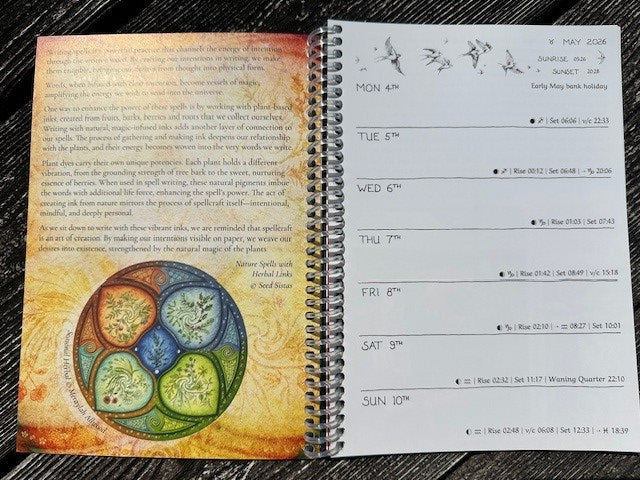 Writing spells is a powerful practice that channels the energy of intention
through the written word. By crafting our intentions in writing, we make
them tangible, bringing our desires from thought into physical form.
Words, when infused with intention, become vessels of magic,
amplifying the energy we wish to send into the universe.
One way to enhance the power of these spells is by working with plant-based
inks, created from fruits, barks, berries and roots that we collect ourselves.
Writing with natural, magic-infused inks adds another layer of connection to
our spells. The process of gathering and making ink deepens our relationship
with the plants, and their energy becomes woven into the very words we write.
Plant dyes carry their own unique potencies. Each plant holds a different
vibration, from the grounding strength of tree bark to the sweet, nurturing
essence of berries. When used in spell writing, these natural pigments imbue
the words with additional life force, enhancing the spell's power. The act of
creating ink from nature mirrors the process of spellcraft itself—intentional,
mindful, and deeply personal.
As we sit down to write with these vibrant inks, we are reminded that spellcraft
is an art of creation. By making our intentions visible on paper, we weave our
desires into existence, strengthened by the natural magic of the plants
Nature Spells with
Herbal Links
© Seed Sistas
♉ MAY 2026
SUNRISE 0526
SUNSET 2028
MON 4TH
Early May bank holiday
♐ | Set 06:06 | v/c 22:33
TUE 5TH
♐ | Rise 00:12 | Set 06:48 | → ♑ 20:06
WED 6TH
♑ | Rise 01:03 | Set 07:43
THU 7TH
♑ | Rise 01:42 | Set 08:49 | v/c 15:18
FRI 8TH
♑ | Rise 02:10 | → ♒ 08:27 | Set 10:01
SAT 9TH
♒ | Rise 02:32 | Set 11:17 | Waning Quarter 22:10
SUN 10TH
♒ | Rise 02:48 | v/c 06:08 | Set 12:33 | → ♓ 18:39